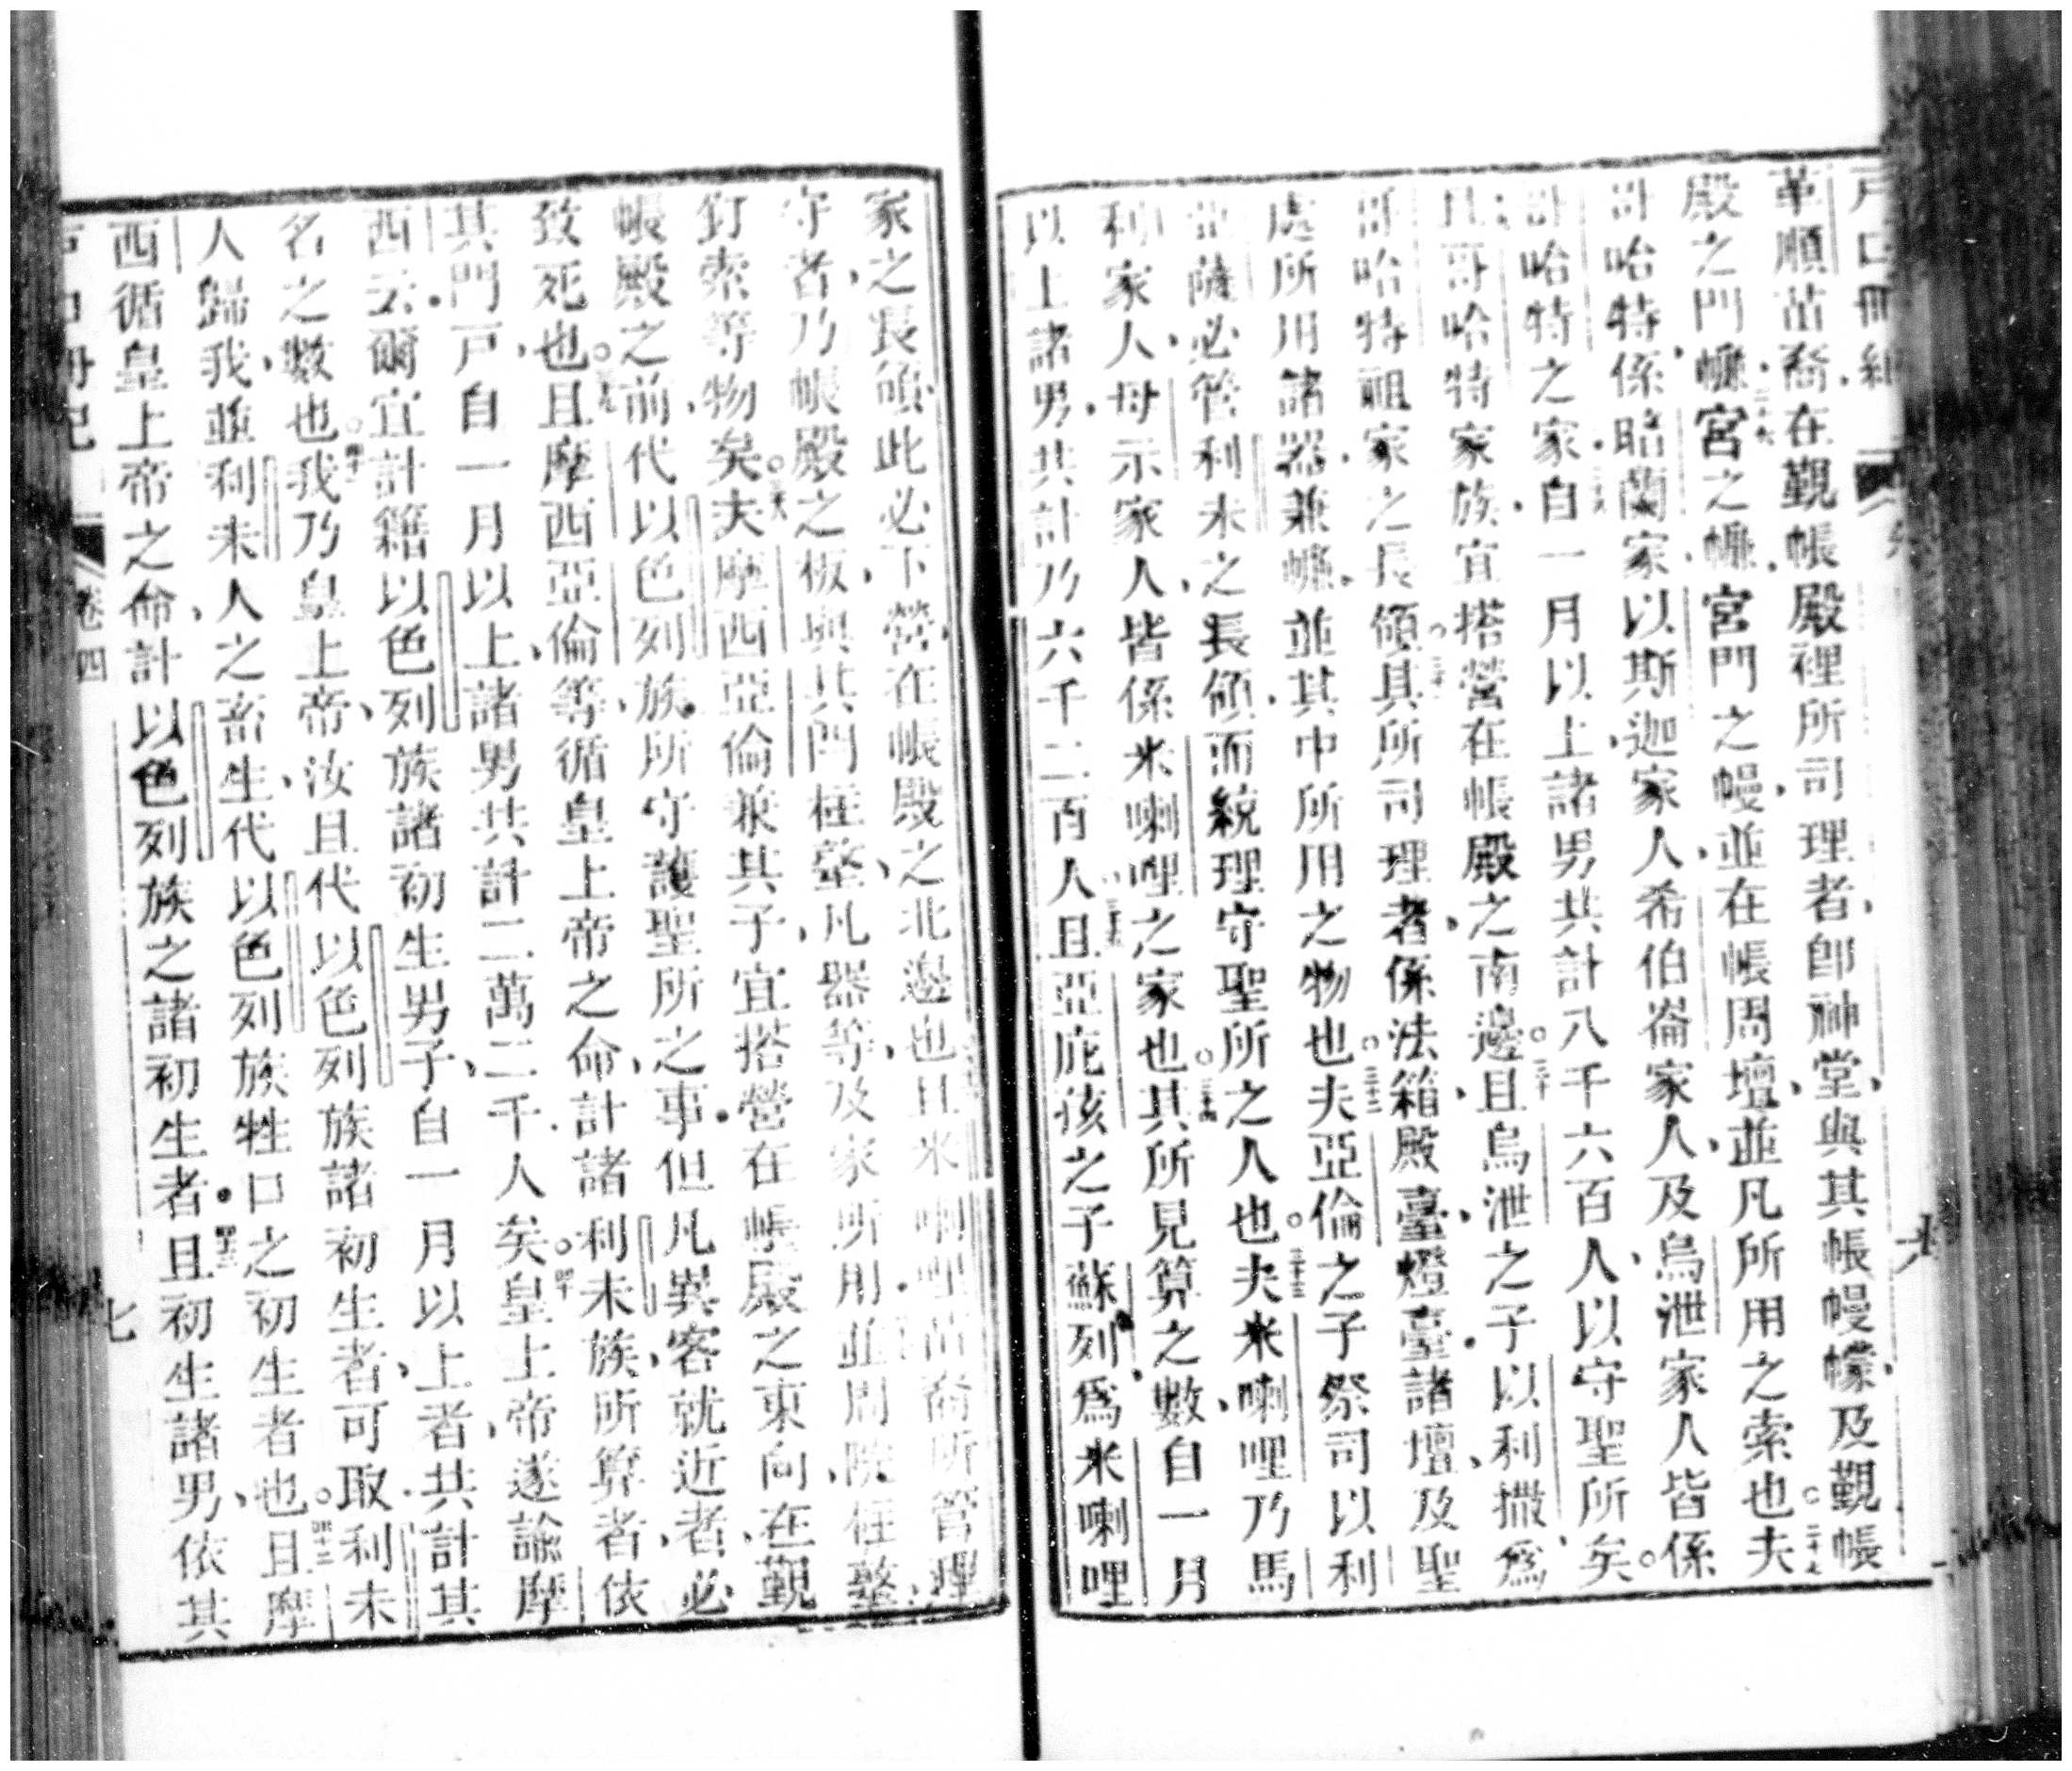 戶口冊紀
革順苗裔在觀帳殿裡所司理者、卽神堂、與其帳幔幪、及觀帳
殿之門㡘、二十六宮之㡘、宮門之幔、並在帳周壇、並凡所用之索也。二十七夫
哥哈特係暗蘭家、以斯迦家人、希伯崙家人、及烏泄家人皆係
哥哈特之家。二十八自一月以上諸男共計八千六百人、以守聖所矣。
且哥哈特家族、宜搭營在帳殿之南邊。三十且烏泄之子以利撒爲
哥哈特祖家之長領。三十一其所司理者、係法箱、殿臺、燈臺、諸壇、及聖
處所用諸器、兼㡘、並其中所用之物也。三十二夫亞倫之子祭司以利
亞薩必管利未之長領、而統理守聖所之人也。三十三夫米喇哩乃馬
利家人、母示家人、皆係米喇哩之家也。三十四其所見算之數、自一月
以上諸男、共計乃六千二百人。三十五且亞庇孩之子蘇列、爲米喇哩
家之長領、此必下營在帳殿之北邊也。且米喇哩苗裔所管理
守者、乃帳殿之板、與其閂、柱、鑿、凡器等、及家所用、並周院柱鑿、
釘索等物矣。三十八夫摩西亞倫兼其子、宜搭營在帳殿之東向、在觀
帳殿之前、代以色列族、所守護聖所之事、但凡異客就近者、必
致死也。三十九且摩西亞倫等、循皇上帝之命、計諸利未族、所算者、依
其門戶、自一月以上諸男共計二萬二千人矣。四十皇上帝遂諭摩
西云、爾宜計籍以色列族諸初生男子、自一月以上者、共計其
名之數也。四十一我乃皇上帝、汝且代以色列族諸初生者、可取利未
人歸我、並利未人之畜生、代以色列族牲口之初生者也。四十二且摩
西循皇上帝之命、計以色列族之諸初生者。四十三且初生諸男、依其
卷四
七